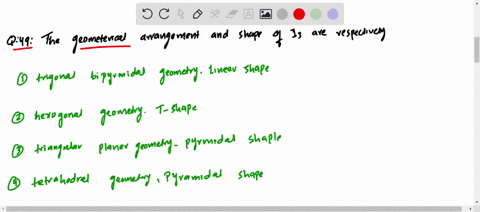 Q:44: The geometerical arrangement and shape of I3 are respectively
① trigonal bipyrmidal geometry. Linear shape
② hexogonal geometry. T-shape
③ triangular planer geometry- pyrmidal shaple
④ tetrahedral geometry, pyramidal shape